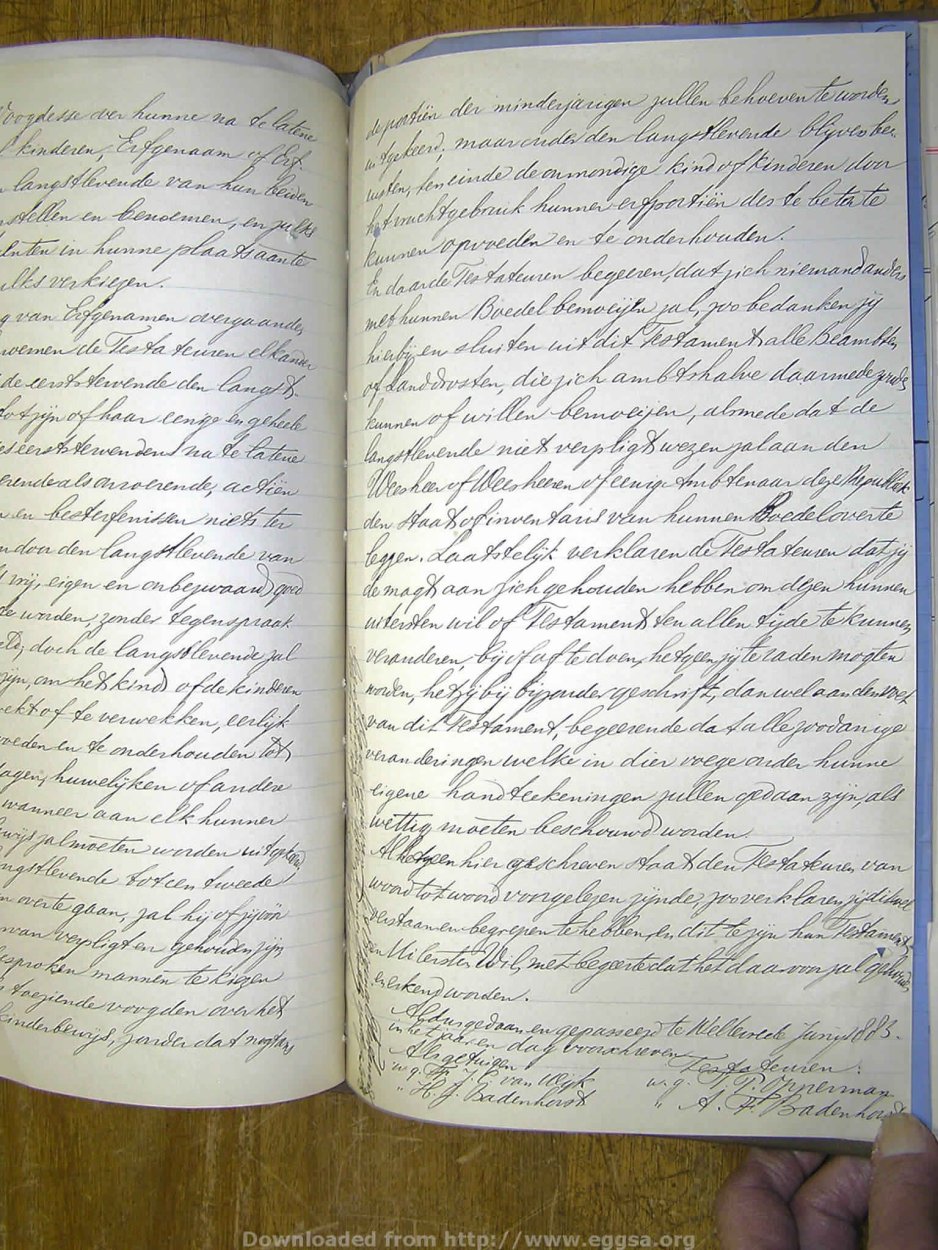 Voogdesse over hunne na te latene
kinderen, Erfgenaam of Erf
langstlevende van hun beiden
stellen en benoemen, en zulks
in hunne plaats aan te
verkiezen.
van Erfgenamen overgaande,
noemen de Testateuren elkander
de eerststervende den langst-
tot zijn of haar eenige en geheele
eerststervenden na te latene
als onroerende, actiën
en besterfenissen niets ter
door den langstlevende van
vrij, eigen en onbezwaard goed
te worden, zonder tegenspraak
doch de langstlevende zal
zijn, om het kind of de kinderen
of te verwekken, eerlijk
en te onderhouden tot
dagen, huwelijken of andere
wanneer aan elk hunner
zal moeten worden uitgekeerd,
langstlevende tot een tweede
overte gaan, zal hij of zij voor
van verpligt en gehouden zijn
mannen te kiezen
toeziende voogden over het
kinderbewijs, zonder dat nogtans
de portiën der minderjarigen zullen behoeven te worden
uitgekeerd, maar onder den langstlevende blijven be-
rusten, ten einde de onmondige kind of kinderen door
het vruchtgebruik hunner erfportiën des te beter te
kunnen opvoeden en te onderhouden.
En daar de Testateuren begeeren, dat zich niemand anders
met hunnen Boedel bemoeijen zal, zoo bedanken zij
hierbij en sluiten uit dit Testament alle Beambten
of Landdrosten, die zich ambtshalve daarmede zouden
kunnen of willen bemoeijen, alsmede dat de
langstlevende niet verpligt wezen zal aan den
Weesheer of Weesheeren of eenige Ambtenaar dezer Republiek
den staat of inventaris van hunnen Boedel over te
leggen. Laatstelijk verklaren de Testateuren dat zij
de magt aan zich gehouden hebben om dezen hunnen
uitersten wil of Testament ten allen tijde te kunnen
veranderen, bij of af te doen, hetgeen zij te raden mogten
worden, hetzij bij bijzonder geschrift, dan wel aan den voet
van dit Testament, begeerende dat alle zoodanige
veranderingen welke in dier voege onder hunne
eigene handteekeningen zullen gedaan zijn, als
wettig moeten beschouwd worden.
Al hetgeen hier geschreven staat den Testateuren van
woord tot woord voorgelezen zijnde, zoo verklaren zij dit wel
verstaan en begrepen te hebben, en dit te zijn hun Testament
en Uitersten Wil, met begeerte dat het daarvoor zal gehouden
en erkend worden.
Aldus gedaan en gepasseerd te Welteverde Junij 1883.
in het jaar en dag voorschreven
Als getuigen Testateuren:
w.g. van Wijk w.g. T. P. Opperman
" H. J. Badenhorst " A. F. Badenhorst
Downloaded from http://www.eggsa.org